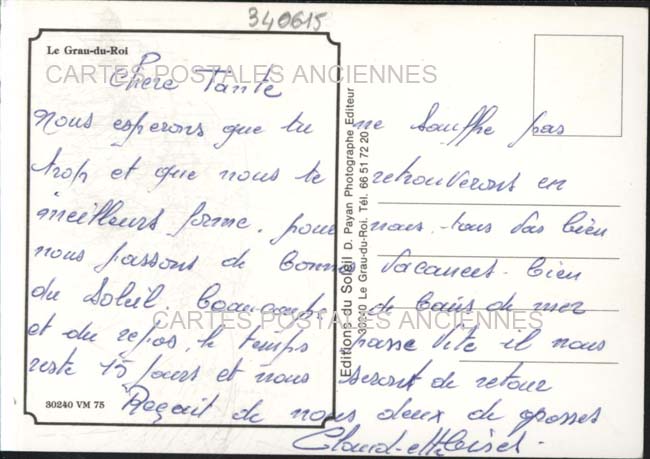 340615
Le Grau-du-Roi
CARTES POSTALES ANCIENNES
Chere Tante
nous esperons que tu ne souffre pas
trop et que nous te retrouverons en
meilleurs forme. pour nous tous vas bien
nous passons de bonnes vacances. bien
du soleil. beaucoup de bains de mer
CARTES POSTALES ANCIENNES
et du repos. le temps passe vite il nous
reste 15 jours et nous serons de retour
Reçoit de nous deux de grosses
30240 VM 75
Editions du Soleil D. Payan Photographe Editeur
30240 Le Grau-du-Roi. Tél. 66 51 72 20